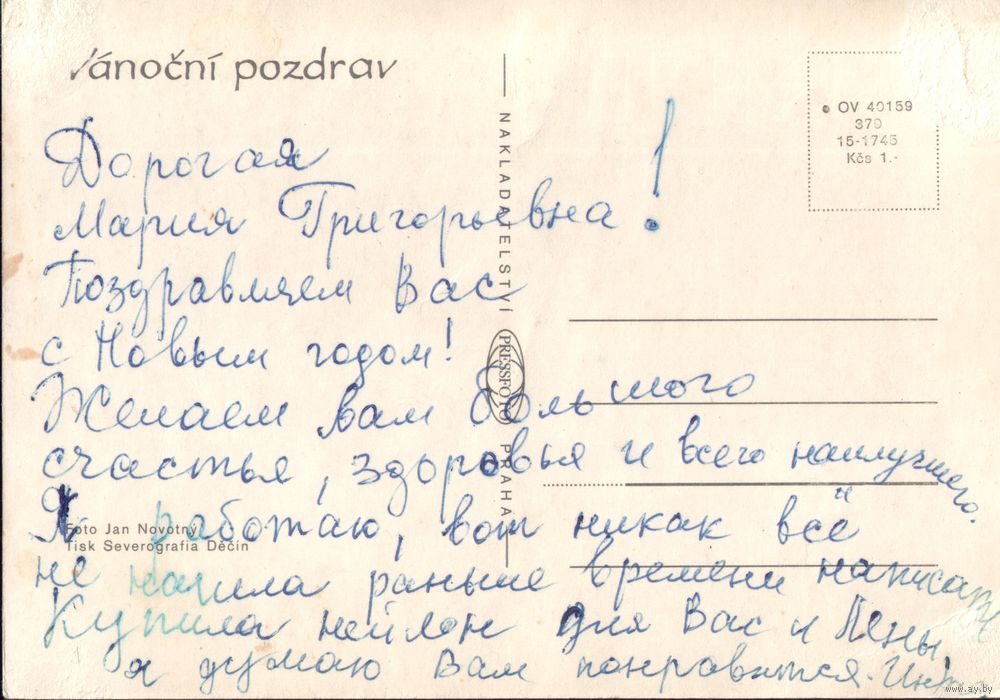 Vánoční pozdrav
OV 40159
379
15-1745
Kčs 1.-
NAKLADATELSTVÍ PRESSFOTO PRAHA
Дорогая
Мария Григорьевна!
Поздравляем Вас
с Новым годом!
Желаем вам большого
счастья, здоровья и всего наилучшего.
Я работаю, вот никак всё
не нашла раньше времени написать
Купила нейлон для Вас и Лены,
я думаю Вам понравится.
Foto Jan Novotný
Tisk Severografia Děčín
www.ay.by